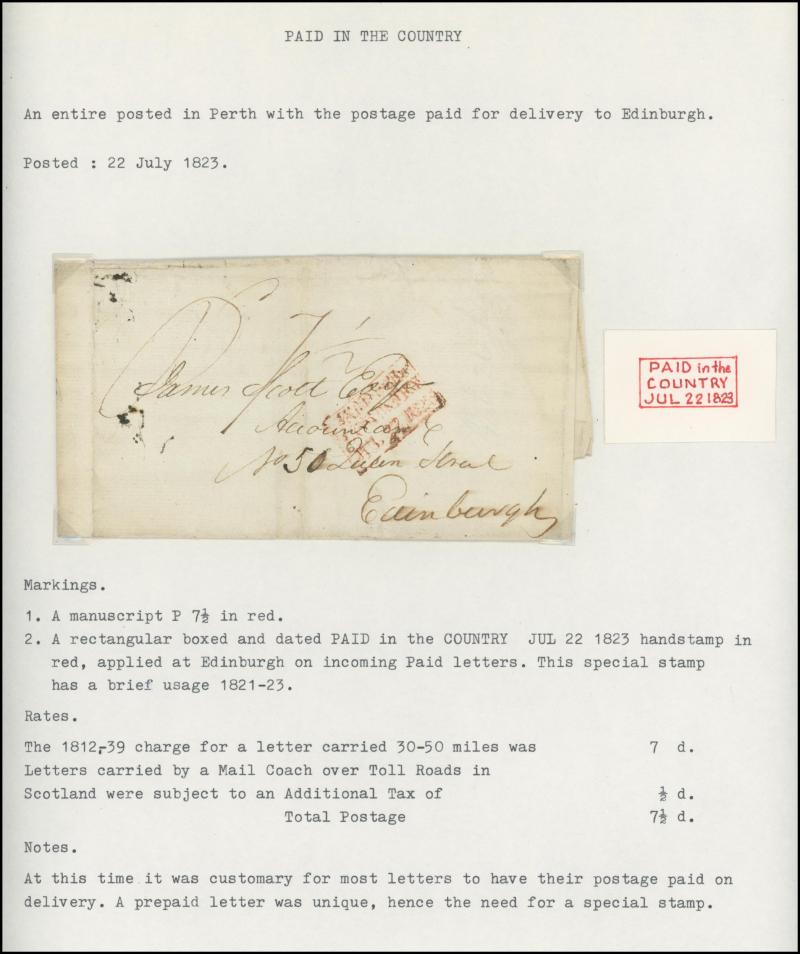 PAID IN THE COUNTRY
An entire posted in Perth with the postage paid for delivery to Edinburgh.
Posted : 22 July 1823.
P 7½
James Scott Esqr
Accountant
No 50 Queen Street
Edinburgh
PAID in the
COUNTRY
JUL 22 1823
Markings.
1. A manuscript P 7½ in red.
2. A rectangular boxed and dated PAID in the COUNTRY JUL 22 1823 handstamp in
red, applied at Edinburgh on incoming Paid letters. This special stamp
has a brief usage 1821-23.
Rates.
The 1812,-39 charge for a letter carried 30-50 miles was 7 d.
Letters carried by a Mail Coach over Toll Roads in
Scotland were subject to an Additional Tax of ½ d.
Total Postage 7½ d.
Notes.
At this time it was customary for most letters to have their postage paid on
delivery. A prepaid letter was unique, hence the need for a special stamp.